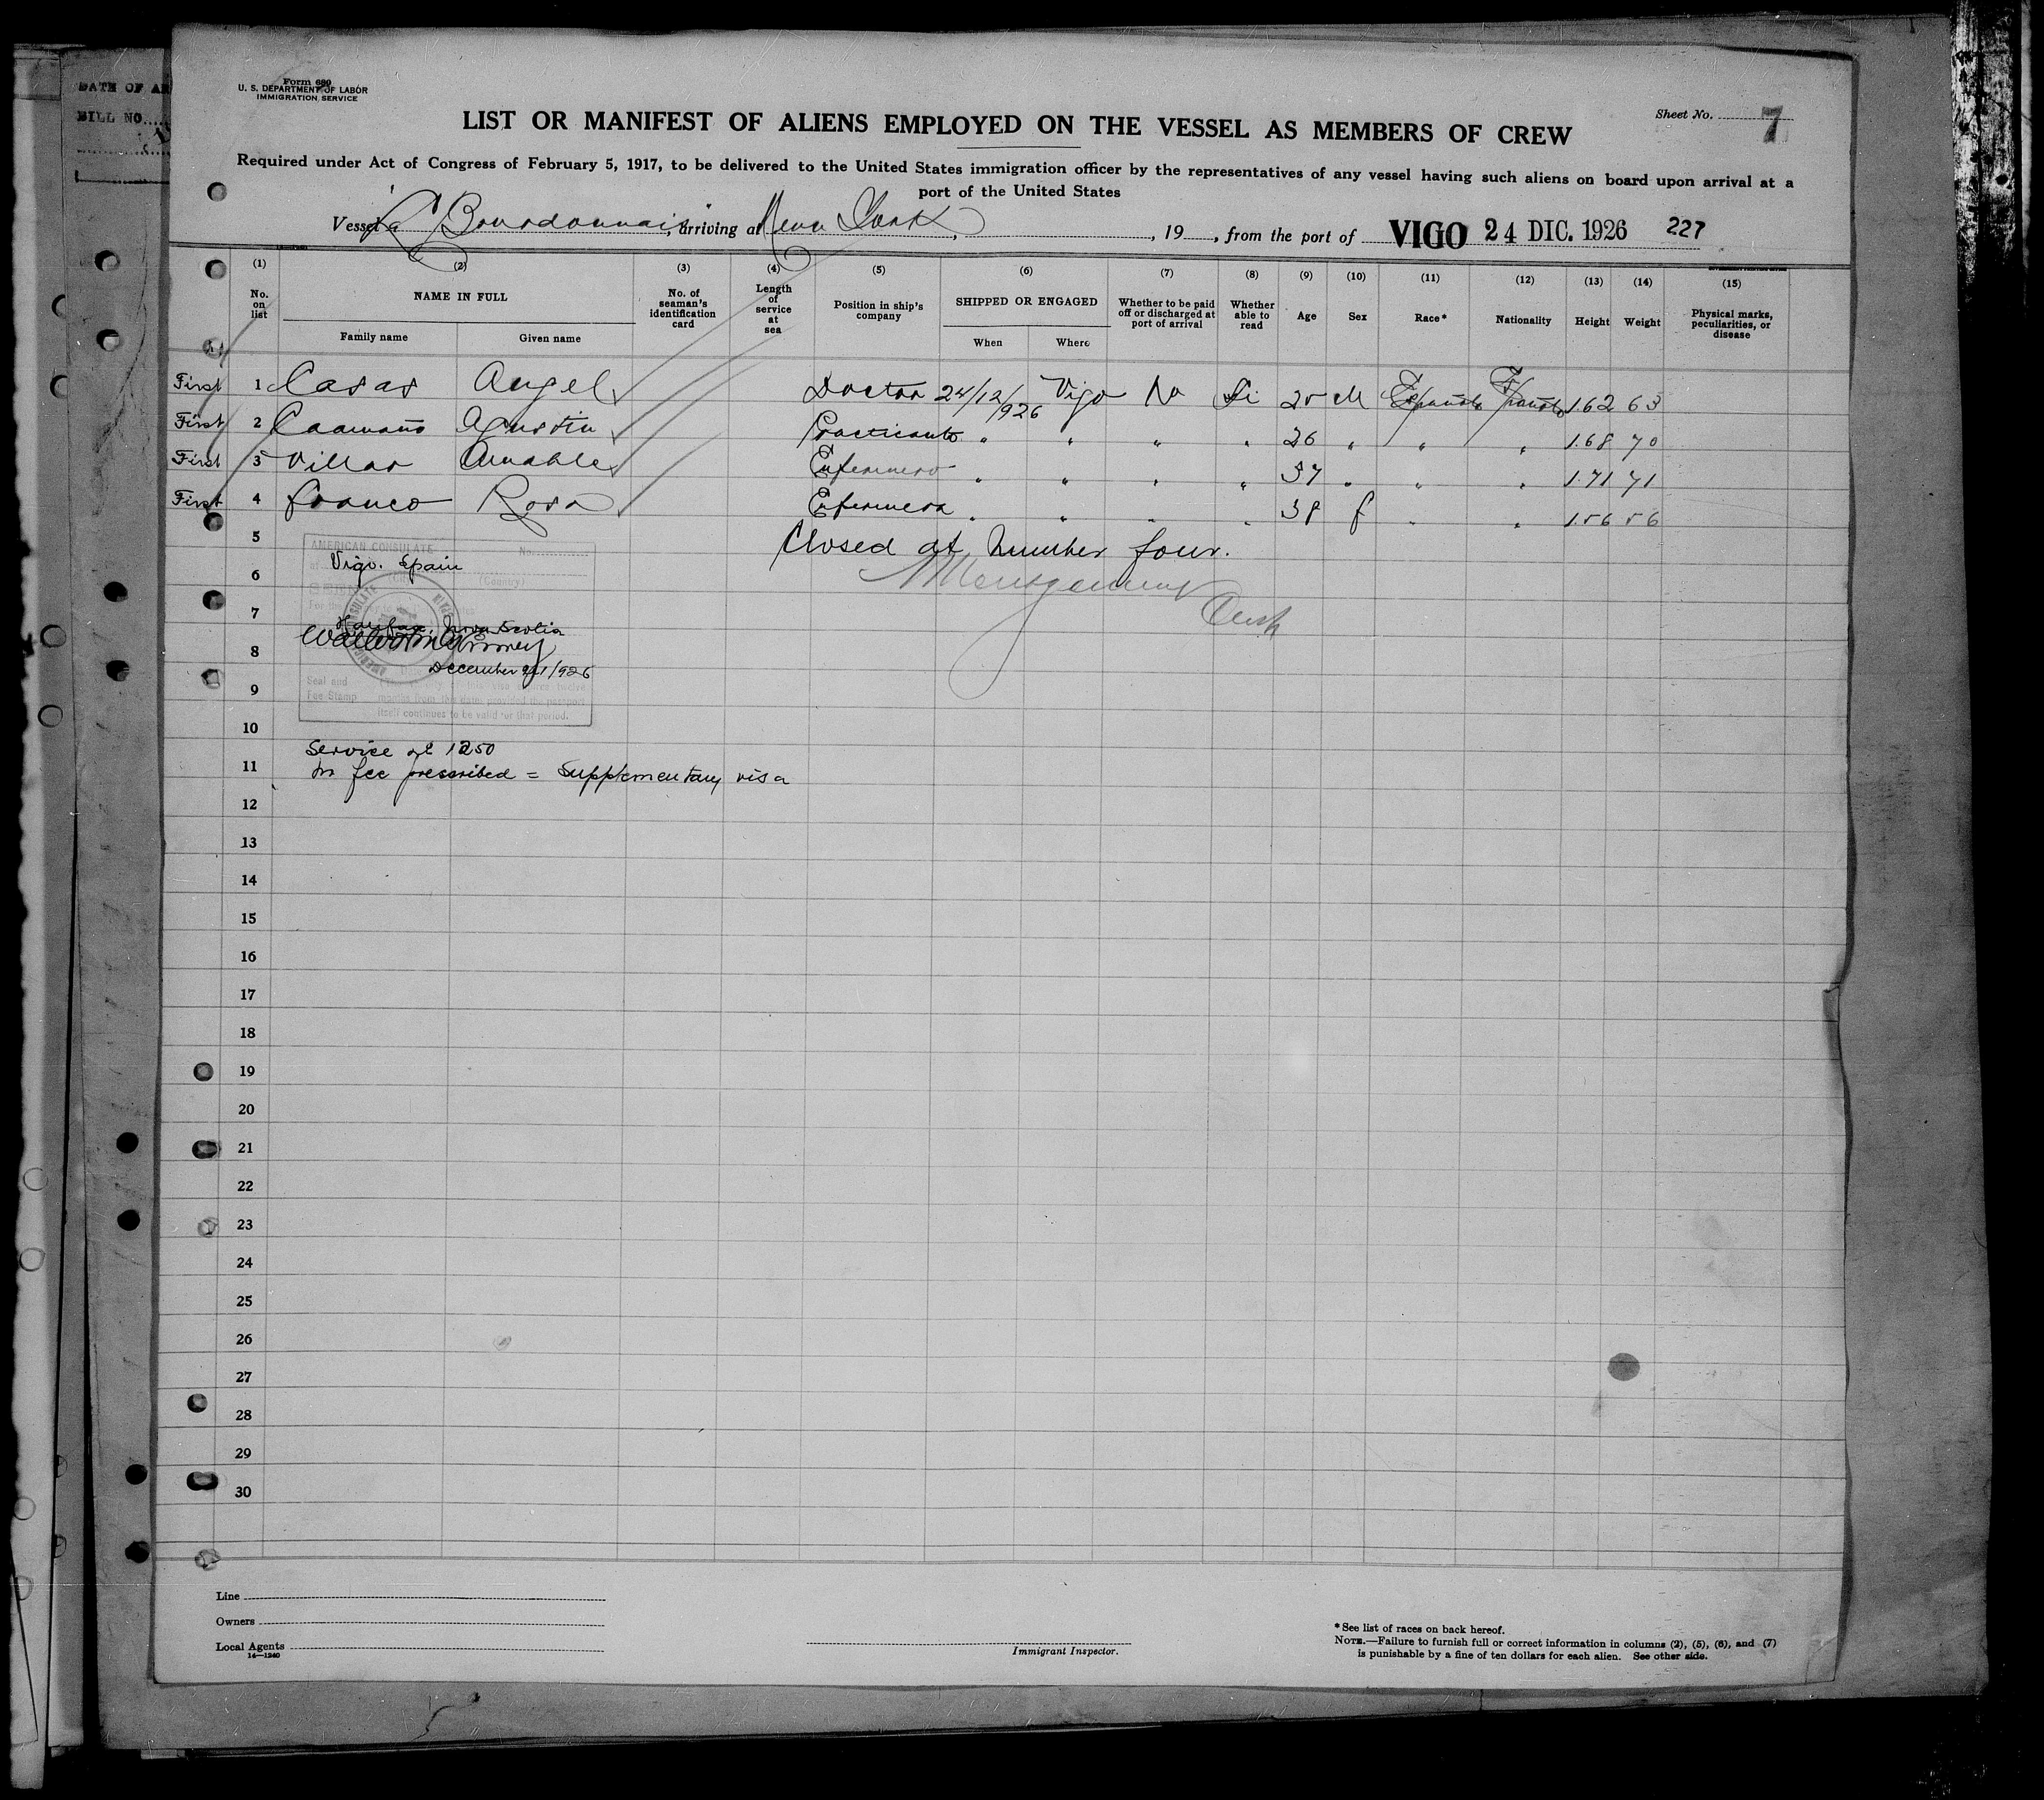 DATE OF AR
BILL NO.
Form 680
U. S. DEPARTMENT OF LABOR
IMMIGRATION SERVICE
Sheet No. 7
LIST OR MANIFEST OF ALIENS EMPLOYED ON THE VESSEL AS MEMBERS OF CREW
Required under Act of Congress of February 5, 1917, to be delivered to the United States immigration officer by the representatives of any vessel having such aliens on board upon arrival at a
port of the United States
Vessel La Bourdonnais, arriving at New York, , 19 , from the port of VIGO 24 DIC. 1926 227
(1) (2) (3) (4) (5) (6) (7) (8) (9) (10) (11) (12) (13) (14) (15)
No. on list NAME IN FULL No. of seaman's identification card Length of service at sea Position in ship's company SHIPPED OR ENGAGED Whether to be paid off or discharged at port of arrival Whether able to read Age Sex Race* Nationality Height Weight Physical marks, peculiarities, or disease
Family name Given name When Where
First 1 Casas Angel Doctor 24/12/926 Vigo No Si 25 M Española Española 1.62 63
First 2 Caamaño Agustin Practicante " " " " 26 " " " 1.68 70
First 3 Villar Amable Enfermero " " " " 37 " " " 1.71 71
First 4 Franco Rosa Enfermera " " " " 38 f " " 1.56 56
5 Closed at number four.
AMERICAN CONSULATE No.
Vigo. Spain
(Country)
6 Montgomery
7
Halifax, Nova Scotia
8
December 31/1926
Seal and
Fee Stamp months from this date, provided the passport
itself continues to be valid for that period.
9
10
Service No 1250
11 No fee prescribed = Supplementary visa
12
13
14
15
16
17
18
19
20
21
22
23
24
25
26
27
28
29
30
Line
Owners
Local Agents
14—1240
Immigrant Inspector.
*See list of races on back hereof.
NOTE.—Failure to furnish full or correct information in columns (2), (5), (6), and (7)
is punishable by a fine of ten dollars for each alien. See other side.